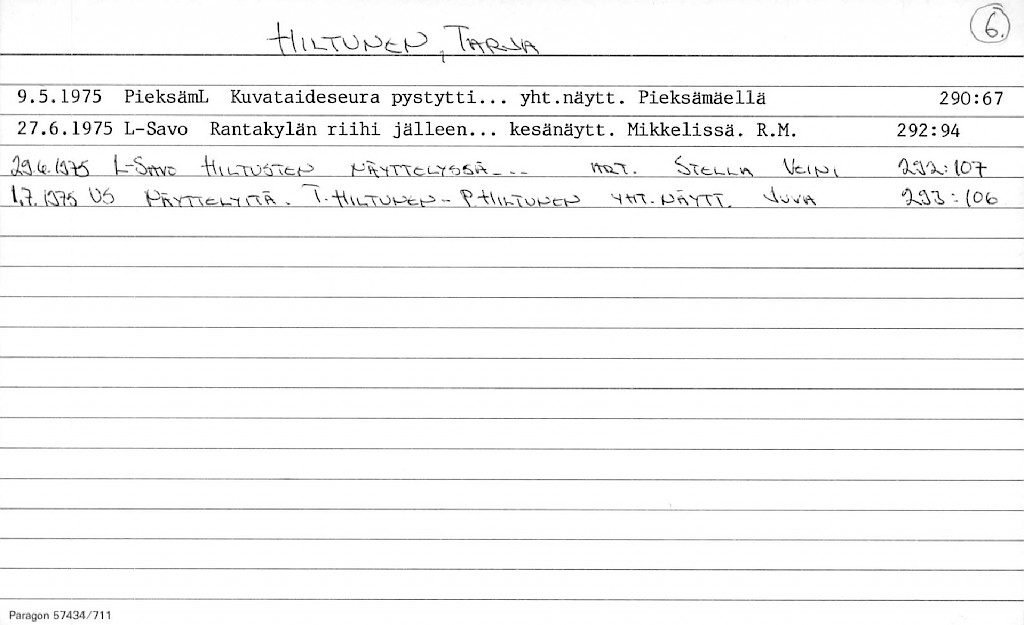 6.
HILTUNEN, TARJA
9.5.1975 PieksämL Kuvataideseura pystytti... yht.näytt. Pieksämäellä 290:67
27.6.1975 L-Savo Rantakylän riihi jälleen... kesänäytt. Mikkelissä. R.M. 292:94
29.6.1975 L-SAVO HILTUSTEN NÄYTTELYSSÄ... ART. STELLA VEINI 292:107
1.7.1975 US NÄYTTELYITÄ. T. HILTUNEN - P. HILTUNEN YHT. NÄYTT. JUVA 293:106
Paragon 57434/711